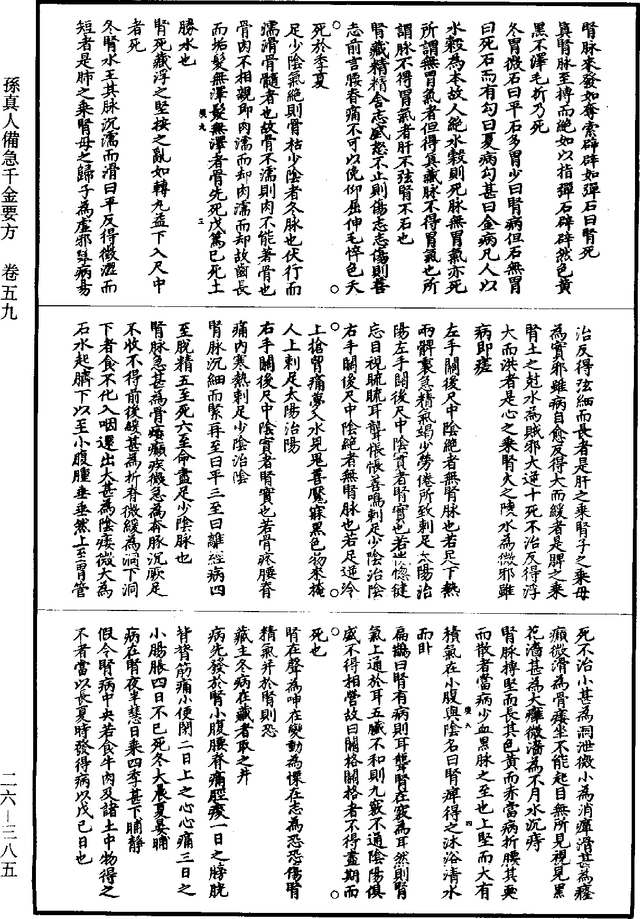 孫真人備急千金要方　卷五九
二六－三八五
腎脉來發如奪索辟辟如彈石曰腎死
真腎脉至搏而絕如以指彈石辟辟然色黃
黑不澤毛折乃死
冬胃微石曰平石多胃少曰腎病但石無胃
曰死石而有勾曰夏病勾甚曰金病凡人以
水穀為本故人絕水穀則死脉無胃氣亦死
所謂無胃氣者但得真藏脉不得胃氣也所
謂脉不得胃氣者肝不弦腎不石也
腎藏精精舍志盛怒不止則傷志志傷則善
忘前言腰脊痛不可以俛仰屈伸毛悴色夭
死於季夏
足少陰氣絕則骨枯少陰者冬脉也伏行而
濡滑骨髓者也故骨不濡則肉不能著骨也
骨肉不相親即肉濡而却肉濡而却故齒長
而垢髮無澤髮無澤者骨先死戊篤巳死土
勝水也
腎死藏浮之堅按之亂如轉丸益下入尺中
者死
冬腎水王其脉沉濡而滑曰平反得微澀而
短者是肺之乘腎母之歸子為虛邪雖病易
治反得弦細而長者是肝之乘腎子之乘母
為實邪雖病自愈反得大而緩者是脾之乘
腎土之尅水為賊邪大逆十死不治反得浮
大而洪者是心之乘腎火之陵水為微邪雖
病即瘥
左手關後尺中陰絕者無腎脉也若足下熱
兩髀裏急精氣竭少勞倦所致刺足太陽治
陽左手關後尺中陰實者腎實也若恍惚健
忘目視䀮䀮耳聾悵悵善鳴刺足少陰治陰
右手關後尺中陰絕者無腎脉也若足逆冷
上搶胷痛夢入水見鬼善魘寐黑色物來掩
人上刺足太陽治陽
右手關後尺中陰實者腎實也若骨疼腰脊
痛內寒熱刺足少陰治陰
腎脉沉細而緊再至曰平三至曰離經病四
至脫精五至死六至命盡足少陰脉也
腎脉急甚為骨痿癲疾微急為奔豚沉厥足
不收不得前後緩甚為折脊微緩為洞下洞
下者食不化入咽還出大甚為陰痿微大為
石水起臍下以至小腹腫垂垂然上至胃管
死不治小甚為洞泄微小為消癉滑甚為癃
癲微滑為骨痿坐不能起目無所見視見黑
花濇甚為大癰微濇為不月水沉痔
腎脉搏堅而長其色黃而赤當病折腰其耎
而散者當病少血黑脉之至也上堅而大有
積氣在小腹與陰名曰腎痹得之沐浴清水
而臥
扁鵲曰腎有病則耳聾腎在竅為耳然則腎
氣上通於耳五藏不和則九竅不通陰陽俱
盛不得相營故曰關格關格者不得盡期而
死也
腎在聲為呻在變動為慄在志為恐恐傷腎
精氣并於腎則恐
藏主冬病在藏者取之井
病先發於腎小腹腰脊痛脛痠一日之膀胱
背膂筋痛小便閉二日上之心心痛三日之
小腸脹四日不已死冬大晨夏晏晡
病在腎夜半慧日乘四季甚下晡靜
假令腎病中央若食牛肉及諸土中物得之
不者當以長夏時發得病以戊己日也